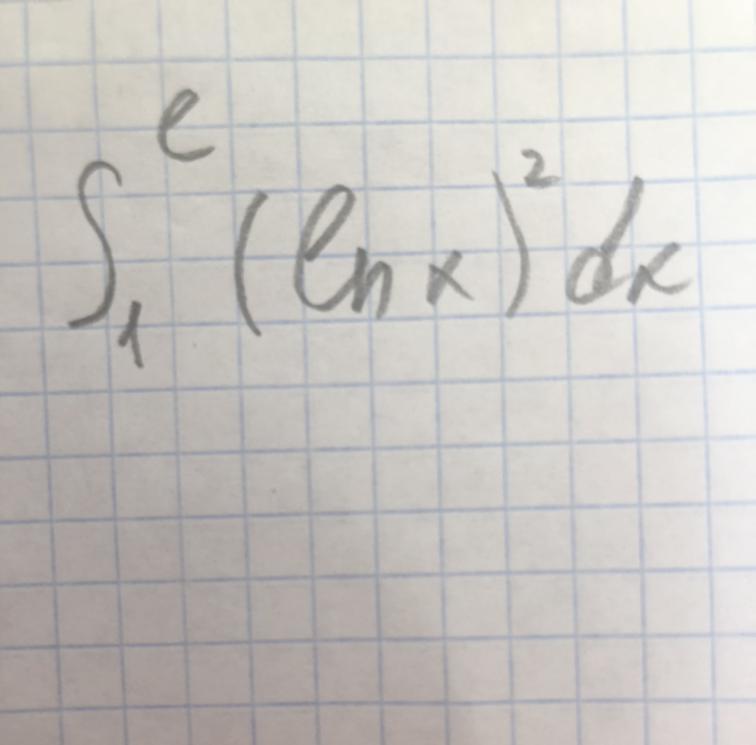 ∫₁ᵉ (ln x)² dx